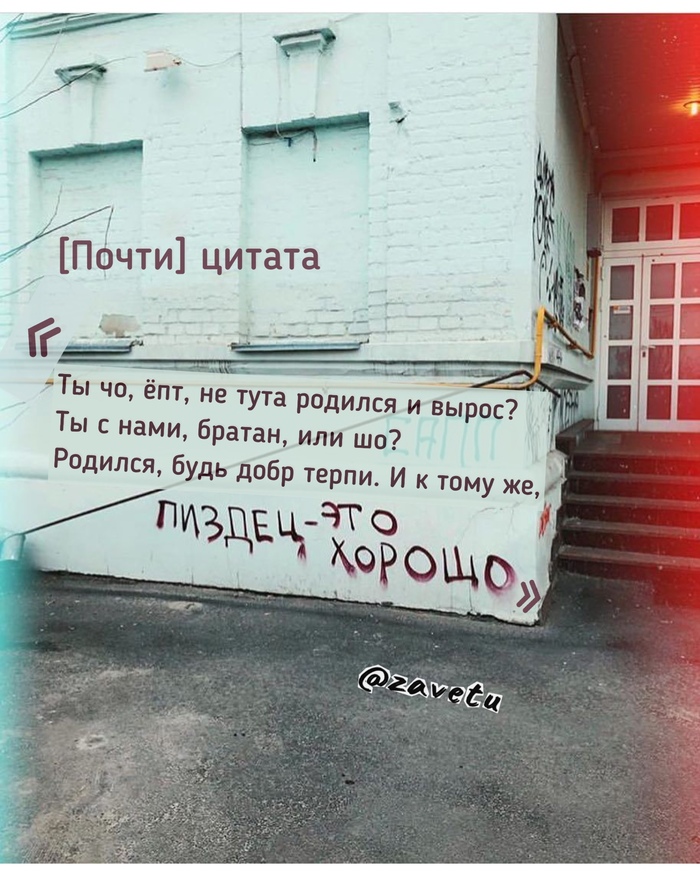 [Почти] цитата
«
Ты чо, ёпт, не тута родился и вырос?
Ты с нами, братан, или шо?
Родился, будь добр терпи. И к тому же,
ПИЗДЕЦ-ЭТО
ХОРОШО
»
@zavetu